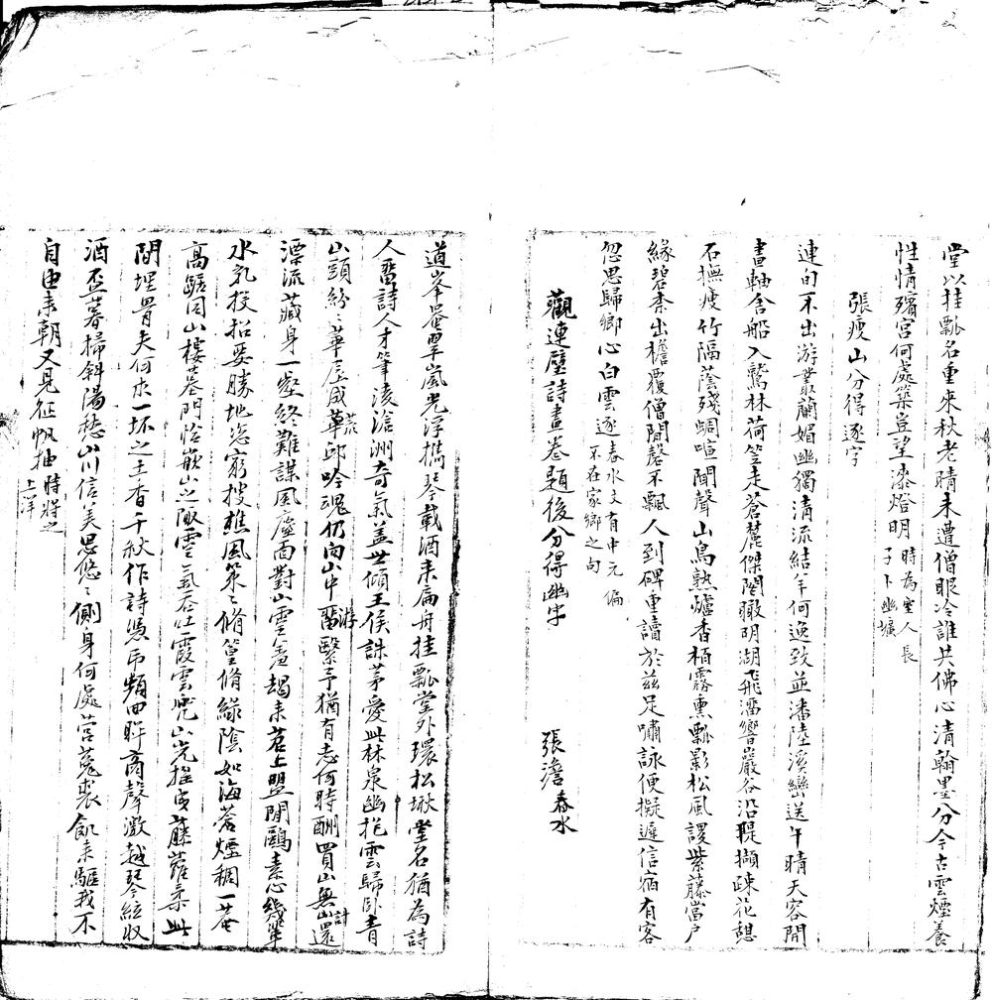 堂以挂瓢名重來秋老晴未遭僧眼冷誰共佛心清翰墨分今古雲煙養
性情殯宮何處築豈望漆燈明時為室人長子卜幽壙
張瘦山分得逐字
連旬不出游叢蘭媚幽獨清流結羊何逸致並潘陸溪巒送午晴天容開
畫軸含船入鷲林荷笠走蒼麓傑閣瞰明湖飛濤響巖谷沿隄擷疎花憩
石撫瘦竹隔蔭殘蜩喧聞聲山鳥熟爐香栢霧熏瓢影松風謖紫藤當戶
緣碧柰出檐覆僧閒磬不飄人到碑重讀於茲足嘯詠便擬遲信宿有客
忽思歸鄉心白雲逐春水文有中元偏不在家鄉之句
觀連璧詩畫卷題後分得幽字 張澹春水
道峯晻翠嵐光浮攜琴載酒来扁舟挂瓢堂外環松楸堂名猶為詩
人畱詩人才筆淩滄洲奇氣蓋世傾王侯誅茅愛此林泉幽抱雲歸臥青
山頭紛〻華屋咸荒邱吟魂仍向山中游繫予猶有志何時酬買山無計還
漂流藏身一壑終難謀風廬面對山雲羞朅来苕上盟閒鷗素心幾輩
水乳投招要勝地恣窮搜樵風策〻脩篁脩綠陰如海蒼煙稠一菴
高踞因山樓墓門恰嵌山之陬雲氣吞吐霞雲兜山光捏成藤蘿柔此
間埋骨夫何求一坏之土香千秋作詩憑弔頻回眸商聲激越琴絃收
酒盃暮掃斜陽愁山川信美思悠〻側身何處營菟裘飢来驅我不
自由来朝又見征帆抽時將之上洋